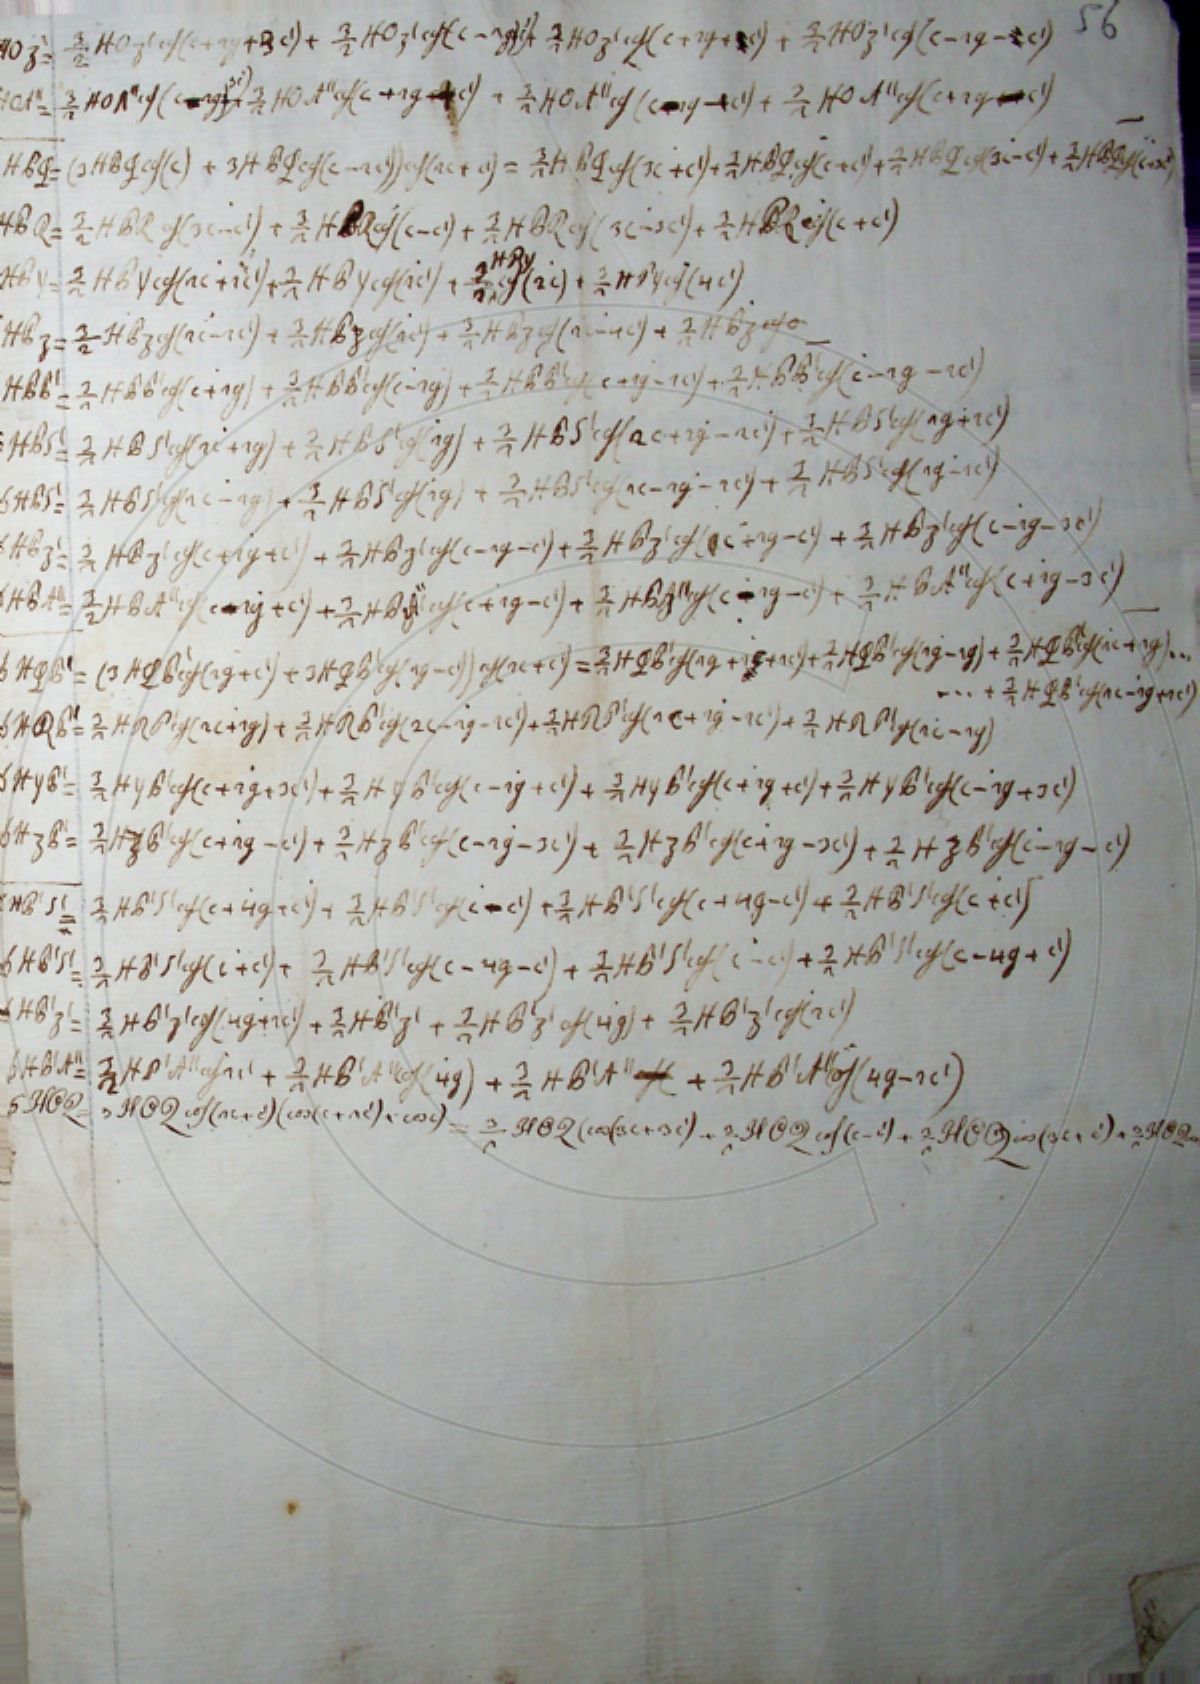 56
HOz'= 3/2 HOz' cof(c+2g+3c') + 3/2 HOz' cof(c-2g+c') + 3/2 HOz' cof(c+2g+c') + 3/2 HOz' cof(c-2g-c')
HOA''= 3/2 HOA'' cof(c-2g+3c') + 3/2 HOA'' cof(c+2g+c') + 3/2 HOA'' cof(c-2g+c') + 3/2 HOA'' cof(c+2g-c')
HBQ= (3HBQ cof(c) + 3HBQ cof(c-2c')) cof(2c+c') = 3/2 HBQ cof(3c+c') + 3/2 HBQ cof(c+c') + 3/2 HBQ cof(3c-c') + 3/2 HBQ cof(c+3c')
HBR= 3/2 HBR cof(3c-c') + 3/2 HBR cof(c-c') + 3/2 HBR cof(3c-3c') + 3/2 HBR cof(c+c')
HBy= 3/2 HBy cof(2c+2c') + 3/2 HBy cof(2c') + 3/2 HBy cof(2c) + 3/2 HBy cof(4c')
HBz= 3/2 HBz cof(2c-2c') + 3/2 HBz cof(2c') + 3/2 HBz cof(2c-4c') + 3/2 HBz cof 0
HBB'= 3/2 HBB' cof(c+2g) + 3/2 HBB' cof(c-2g) + 3/2 HBB' cof(c+2g-2c') + 3/2 HBB' cof(c-2g-2c')
HBS'= 3/2 HBS' cof(2c+2g) + 3/2 HBS' cof(2g) + 3/2 HBS' cof(2c+2g-2c') + 3/2 HBS' cof(2g+2c')
6HBS'= 3/2 HBS' cof(2c-2g) + 3/2 HBS' cof(2g) + 3/2 HBS' cof(2c-2g-2c') + 3/2 HBS' cof(2g-2c')
6HBz'= 3/2 HBz' cof(c+2g+c') + 3/2 HBz' cof(c-2g-c') + 3/2 HBz' cof(c+2g-c') + 3/2 HBz' cof(c-2g-3c')
6HBA''= 3/2 HBA'' cof(c-2g+c') + 3/2 HBA'' cof(c+2g-c') + 3/2 HBA'' cof(c-2g-c') + 3/2 HBA'' cof(c+2g-3c')
6HQB'= (3HQB' cof(2g+c') + 3HQB' cof(2g-c')) cof(2c+c') = 3/2 HQB' cof(2g+2c+2c') + 3/2 HQB' cof(2c-2g) + 3/2 HQB' cof(2c+2g)...
... + 3/2 HQB' cof(2c-2g+2c')
6HRB'= 3/2 HRB' cof(2c+2g) + 3/2 HRB' cof(2c-2g-2c') + 3/2 HRB' cof(2c+2g-2c') + 3/2 HRB' cof(2c-2g)
6HyB'= 3/2 HyB' cof(c+2g+3c') + 3/2 HyB' cof(c-2g+c') + 3/2 HyB' cof(c+2g+c') + 3/2 HyB' cof(c-2g+3c')
6HzB'= 3/2 HzB' cof(c+2g-c') + 3/2 HzB' cof(c-2g-3c') + 3/2 HzB' cof(c+2g-3c') + 3/2 HzB' cof(c-2g-c')
6HB'S'= 3/2 HB'S' cof(c+4g+c') + 3/2 HB'S' cof(c-c') + 3/2 HB'S' cof(c+4g-c') + 3/2 HB'S' cof(c+c')
6HB'S'= 3/2 HB'S' cof(c+c') + 3/2 HB'S' cof(c-4g-c') + 3/2 HB'S' cof(c-c') + 3/2 HB'S' cof(c-4g+c')
HB'z'= 3/2 HB'z' cof(4g+2c') + 3/2 HB'z' + 3/2 HB'z' cof(4g) + 3/2 HB'z' cof(2c')
6HB'A''= 3/2 HB'A'' cof 2c' + 3/2 HB'A'' cof(4g) + 3/2 HB'A'' + 3/2 HB'A'' cof(4g-2c')
6HOQ= 3HOQ cof(2c+c')(cos(c+2c')+cosc) = 3/2 HOQ(cos(3c+3c') + 3/2 HOQ cof(c-c') + 3/2 HOQ cos(3c+c') + 3/2 HOQ